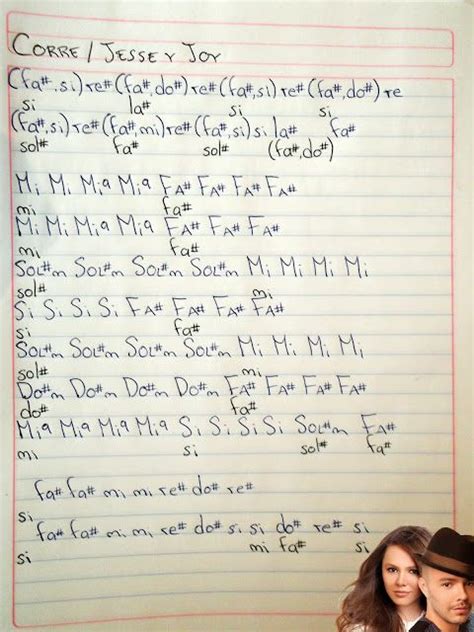 CORRE / JESSE Y JOY
(fa#,si)re#(fa#,do#)re#(fa#,si)re#(fa#,do#)re
si la# si si
(fa#,si)re#(fa#,mi)re#(fa#,si)si la# fa#
sol# fa# sol# (fa#,do#)
Mi Mi Mi9 Mi9 FA# FA# FA# FA#
mi fa#
Mi Mi Mi9 Mi9 FA# FA# FA#
mi fa#
SOL#m SOL#m SOL#m SOL#m Mi Mi Mi Mi
sol# mi
Si Si Si Si FA# FA# FA# FA#
si fa#
SOL#m SOL#m SOL#m SOL#m Mi Mi Mi Mi
sol# mi
DO#m DO#m DO#m DO#m FA# FA# FA# FA#
do# fa#
Mi9 Mi9 Mi9 Mi9 Si Si Si Si SOL#m FA#
mi si sol# fa#
fa# fa# mi mi re# do# re#
si
fa# fa# mi mi re# do# si si do# re# si
si mi fa# si